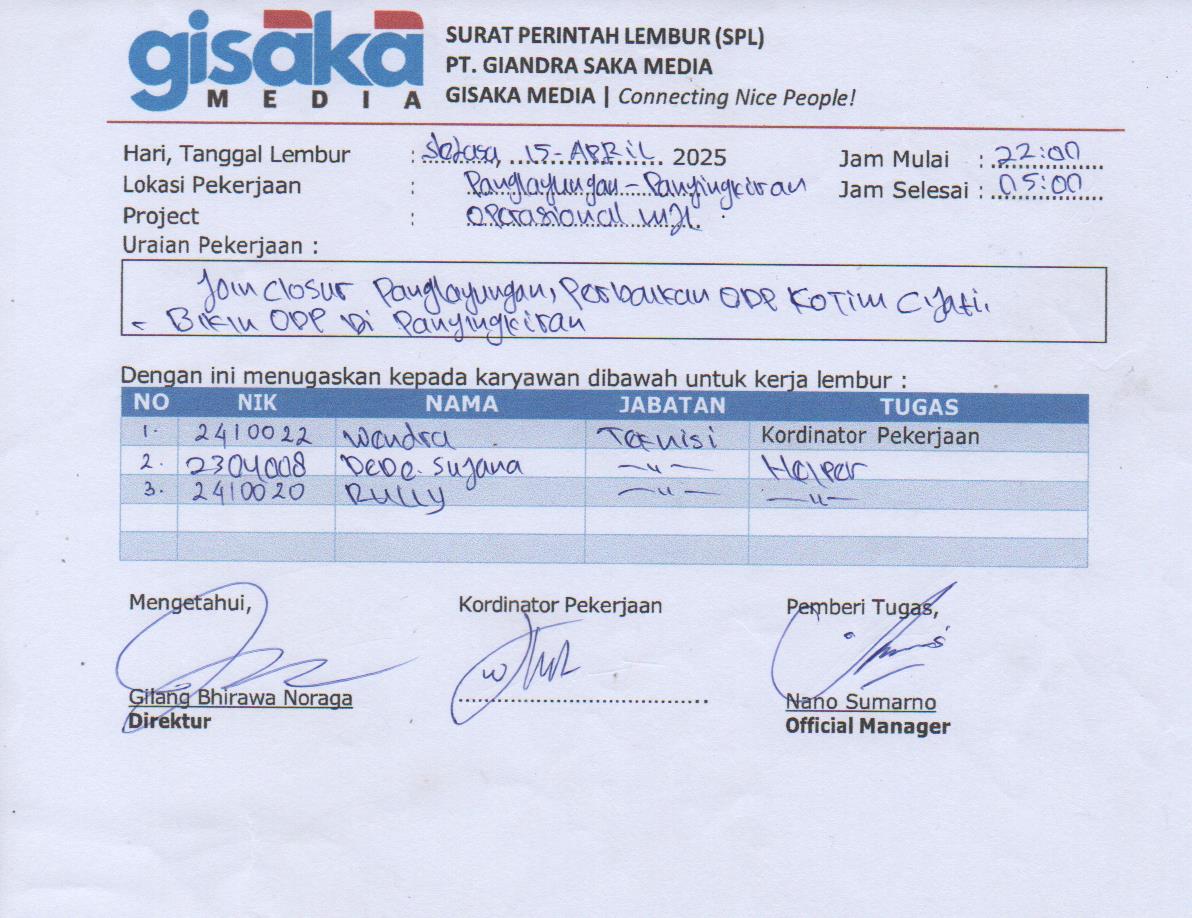 gisaka
MEDIA
SURAT PERINTAH LEMBUR (SPL)
PT. GIANDRA SAKA MEDIA
GISAKA MEDIA | Connecting Nice People!
Hari, Tanggal Lembur : Selasa, 15-APRIL 2025
Jam Mulai : 22:00
Lokasi Pekerjaan : Panglayungan - Panyingkiran
Jam Selesai : 05:00
Project : Operasional MJL.
Uraian Pekerjaan :
Join Closur Panglayungan, Perbaikan ODP KOTIM Cijati.
- Bikin ODP Di Panyingkiran
Dengan ini menugaskan kepada karyawan dibawah untuk kerja lembur :
NO NIK NAMA JABATAN TUGAS
1. 2410022 Wendra Teknisi Kordinator Pekerjaan
2. 2304008 Dede. Sujana —"— Helper
3. 2410020 Rully —"— —"—
Mengetahui, Kordinator Pekerjaan Pemberi Tugas,
Gilang Bhirawa Noraga Nano Sumarno
Direktur Official Manager